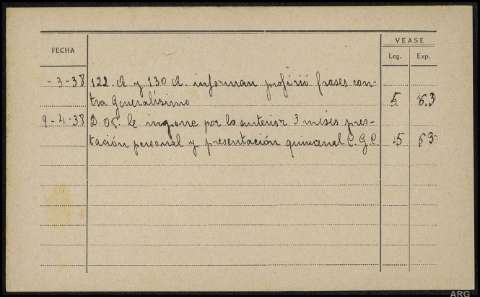 VEASE
FECHA Leg. Exp.
-3-38 122. A y 130 A. informan profirió frases con-
tra Generalísimo 5 63
9-4-38 D. O. S. le impone por lo anterior 3 meses pres-
tación personal y presentación quincenal C. G. C. 5 63
ARG